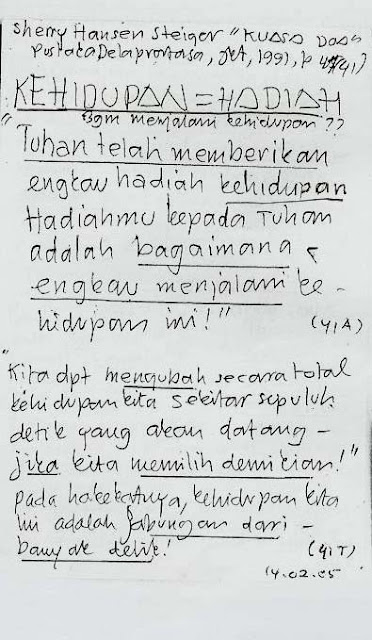 Sherry Hansen Steiger "KUASA DOA"
Pustaka Delaprortasa, Jkt, 1991, p 41)
KEHIDUPAN = HADIAH
Bgm menjalani kehidupan??
"Tuhan telah memberikan
engkau hadiah kehidupan
Hadiahmu kepada Tuhan
adalah bagaimana
engkau menjalani ke-
hidupan ini!" (41A)
"Kita dpt mengubah secara total
kehidupan kita sekitar sepuluh
detik yang akan datang -
jika kita memilih demikian!"
pada hakekatnya, kehidupan kita
ini adalah gabungan dari -
banyak detik! (41T)
14.02.05